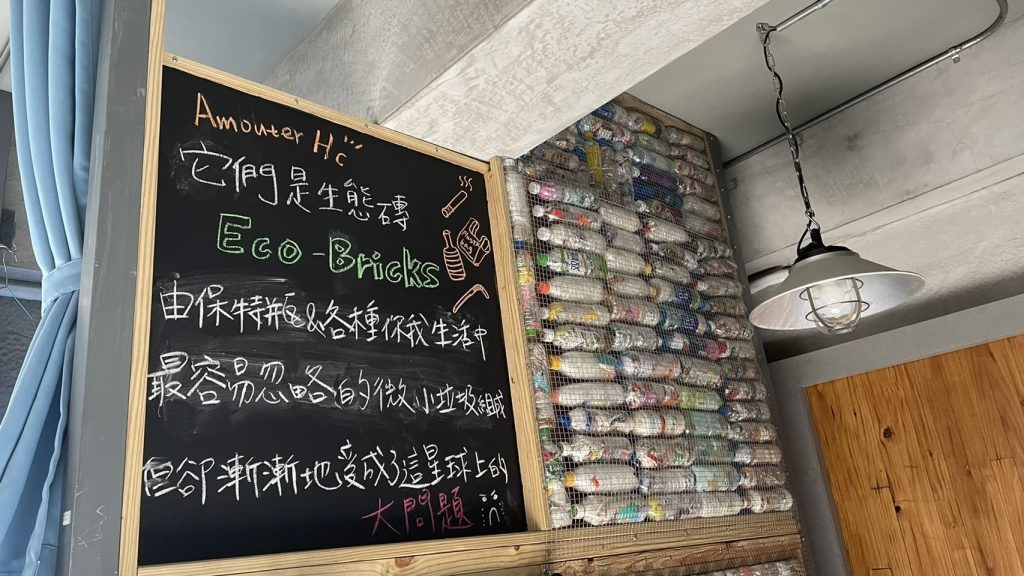 Amouter Hc
它們是生態磚
Eco-Bricks
由保特瓶&各種你我生活中
最容易忽略的微小垃圾組成
但卻漸漸地變成了這星球上的
大問題